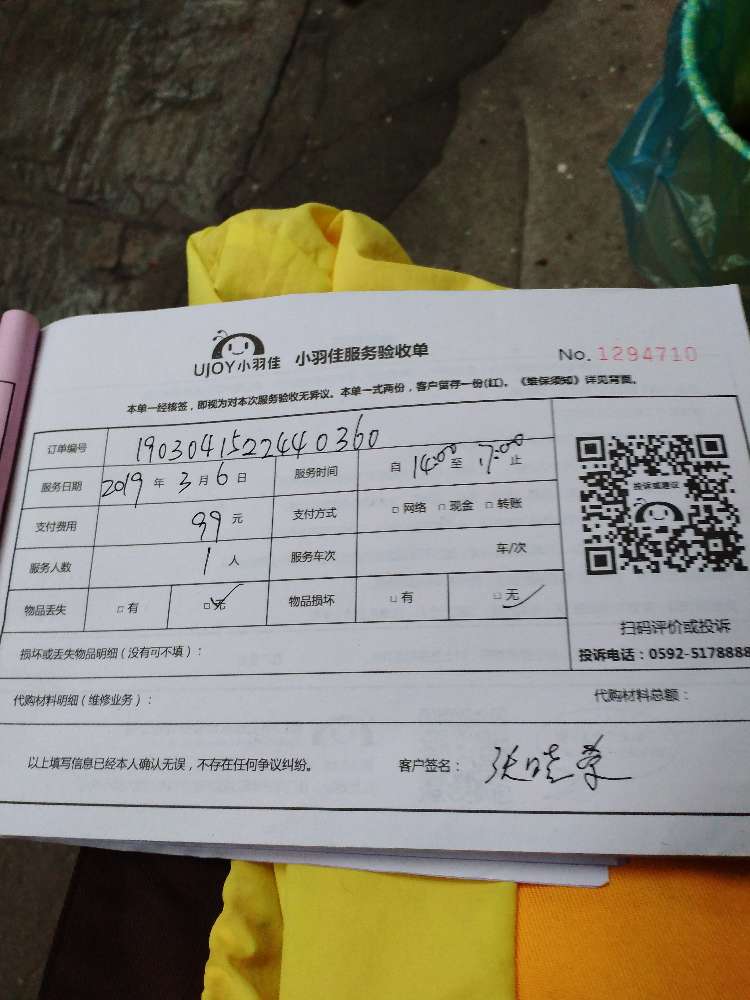 UJOY小羽佳 小羽佳服务验收单 No. 1294710
本单一经核签，即视为对本次服务验收无异议。本单一式两份，客户留存一份(红)。《维保须知》详见背面。
订单编号 1903041522440360
服务日期 2019 年 3 月 6 日 服务时间 自 14:00 至 17:00 止
支付费用 99 元 支付方式 □ 网络 □ 现金 □ 转账
服务人数 1 人 服务车次 车/次
物品丢失 □ 有 □ 无 物品损坏 □ 有 □ 无
投诉或建议
扫码评价或投诉
投诉电话：0592-5178888
损坏或丢失物品明细（没有可不填）：
代购材料明细（维修业务）： 代购材料总额：
以上填写信息已经本人确认无误，不存在任何争议纠纷。 客户签名： 张晓荣